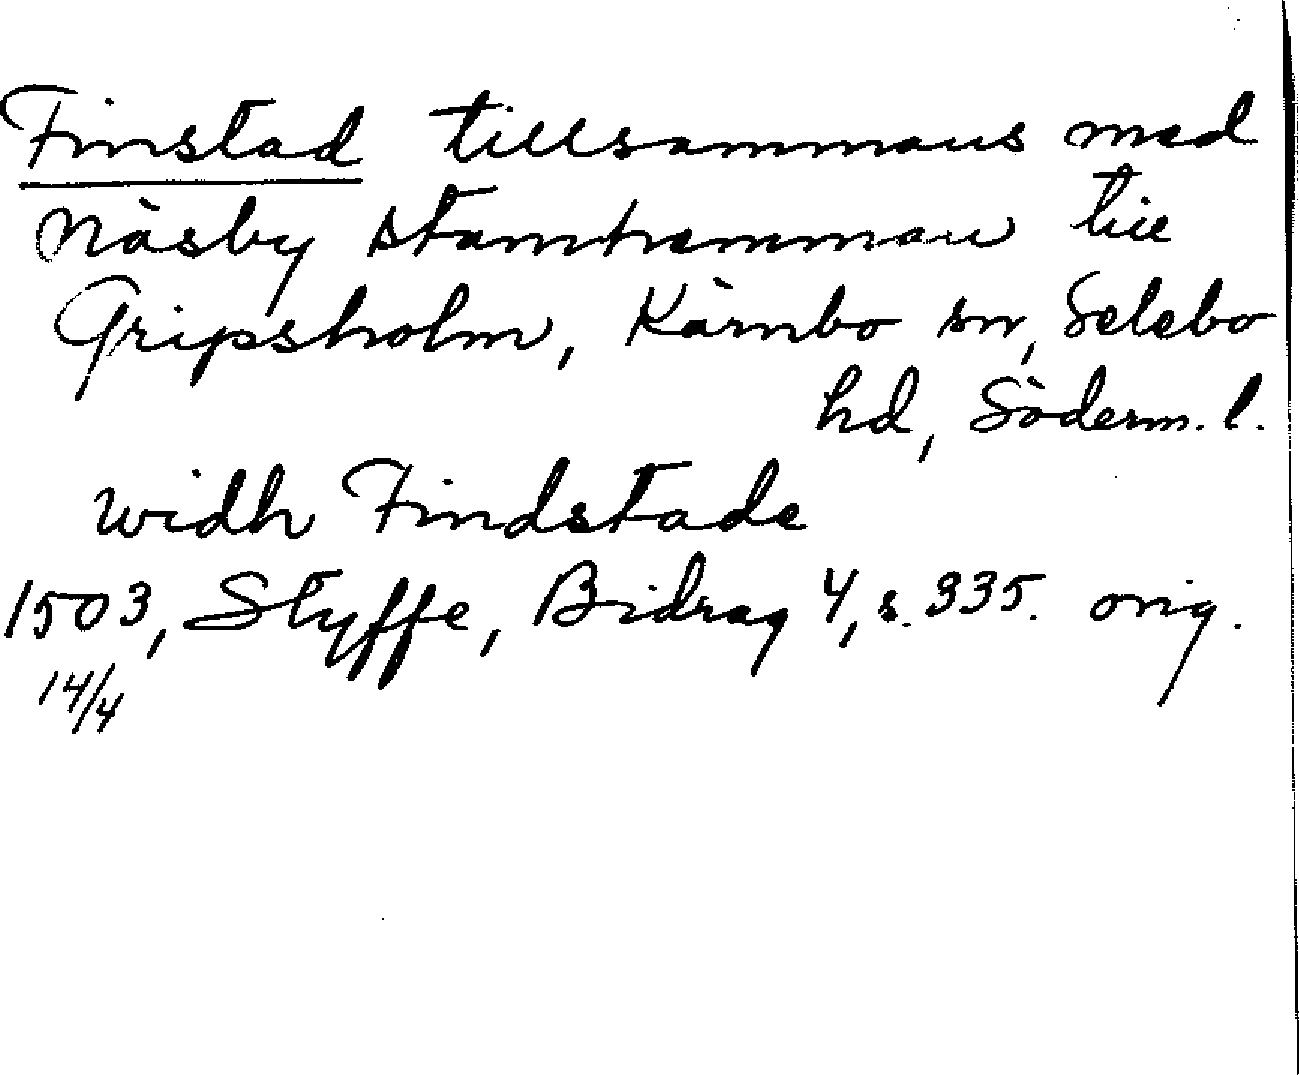 Finstad tillsammans med
Näsby stamhemman till
Gripsholm, Kärnbo sn, Selebo
hd, Söderm. l.
widh Findstade
1503, Styffe, Bidrag 4, s. 335. orig.
14/4